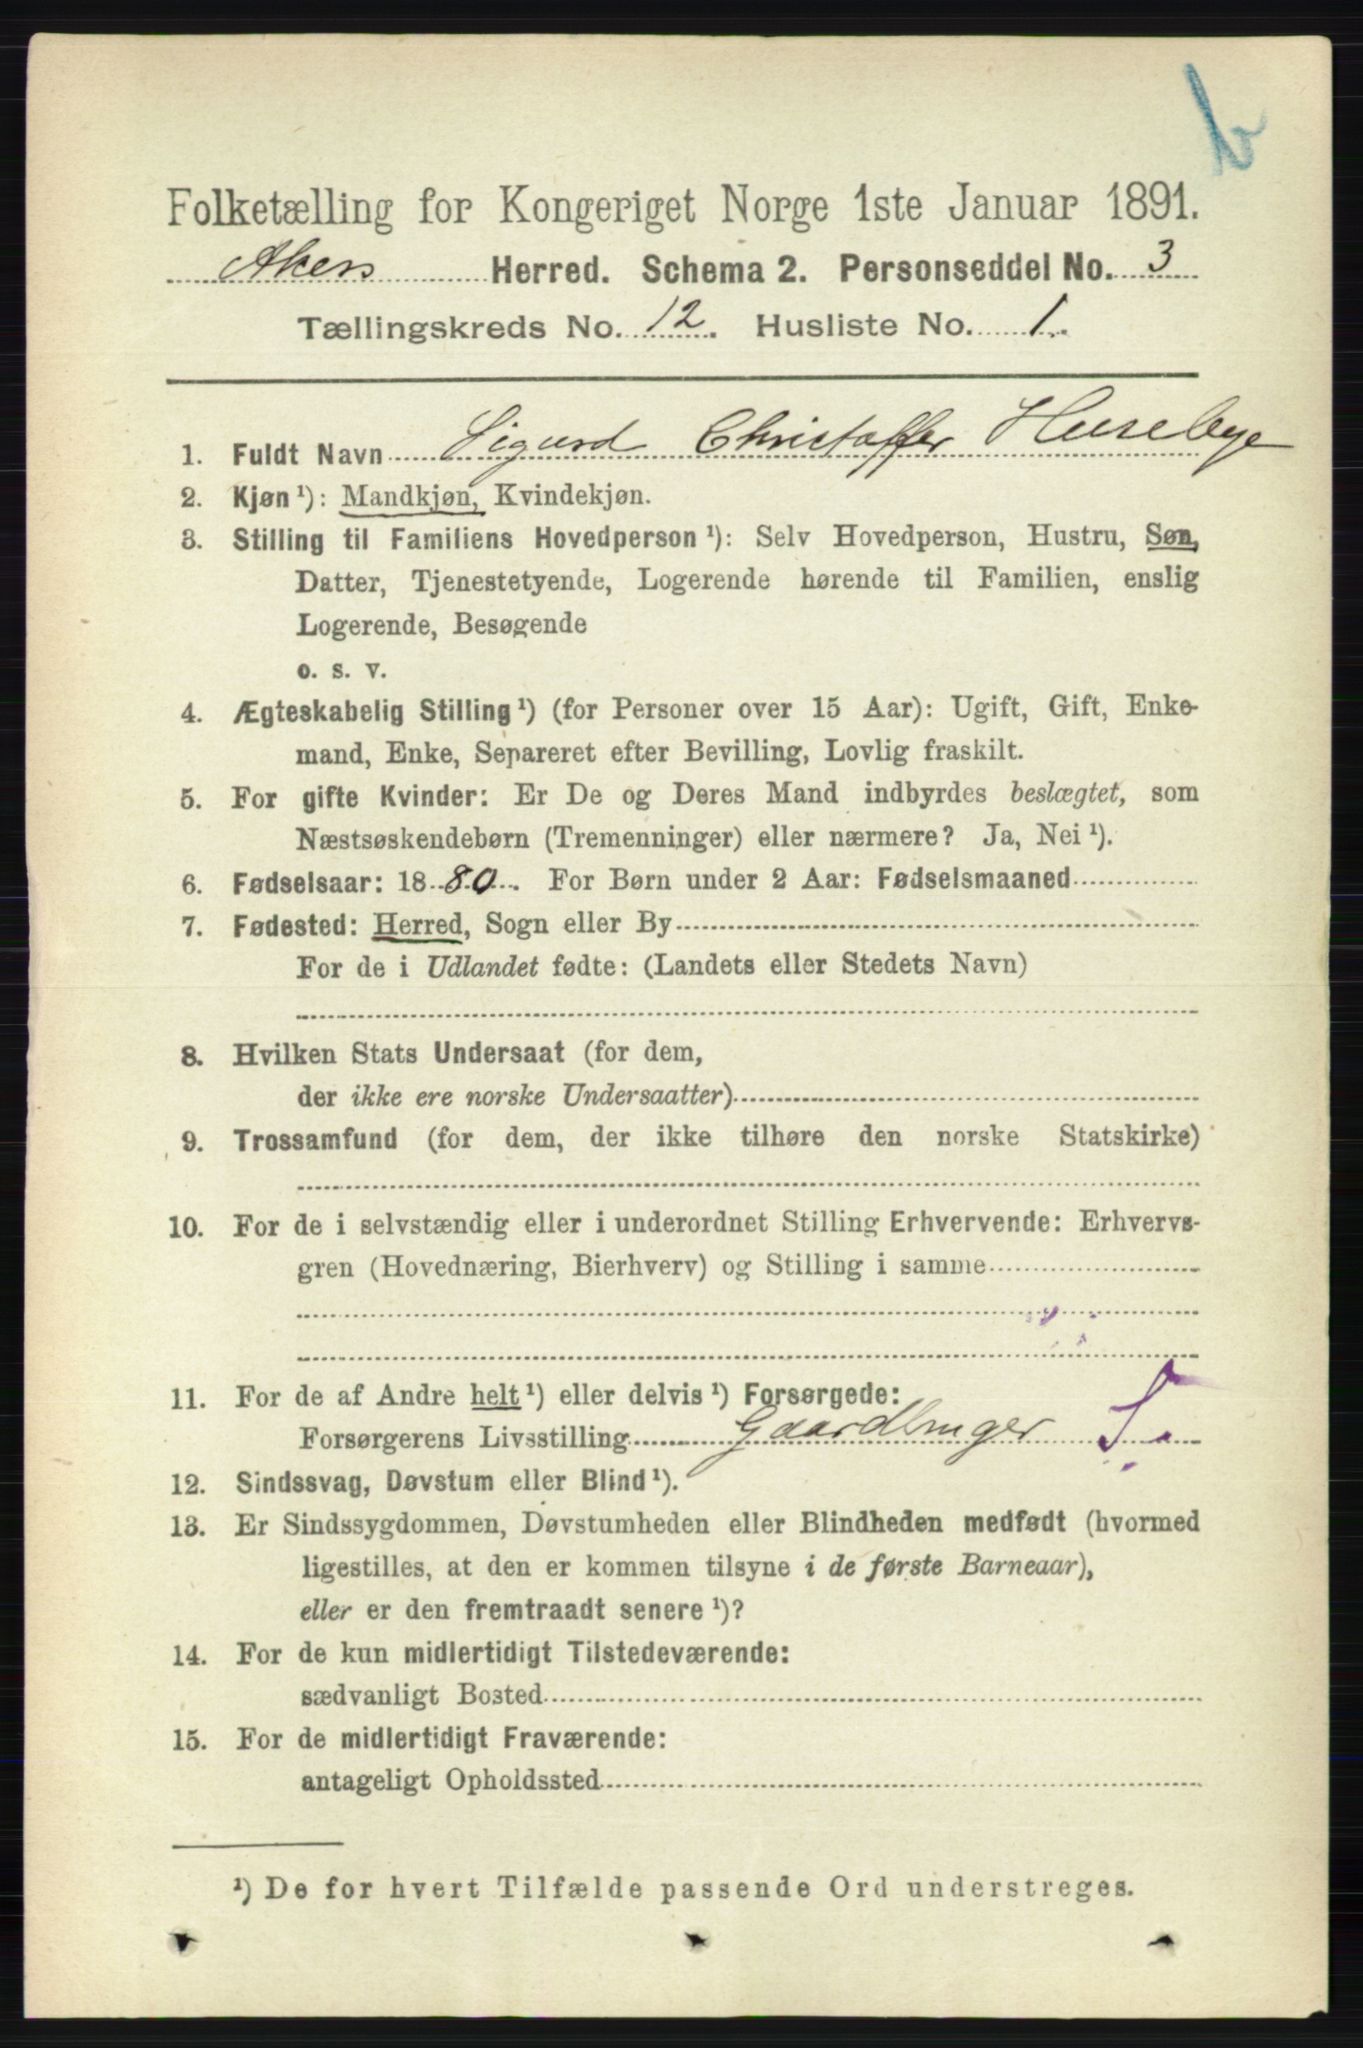 b
Folketælling for Kongeriget Norge 1ste Januar 1891.
Akers Herred. Schema 2. Personseddel No. 3
Tællingskreds No. 12. Husliste No. 1.
1. Fuldt Navn Sigurd Christoffer Husebye
2. Kjøn ¹): Mandkjøn, Kvindekjøn.
3. Stilling til Familiens Hovedperson ¹): Selv Hovedperson, Hustru, Søn,
Datter, Tjenestetyende, Logerende hørende til Familien, enslig
Logerende, Besøgende
o. s. v.
4. Ægteskabelig Stilling ¹) (for Personer over 15 Aar): Ugift, Gift, Enke-
mand, Enke, Separeret efter Bevilling, Lovlig fraskilt.
5. For gifte Kvinder: Er De og Deres Mand indbyrdes beslægtet, som
Næstsøskendebørn (Tremenninger) eller nærmere? Ja, Nei ¹).
6. Fødselsaar: 1880. For Børn under 2 Aar: Fødselsmaaned
7. Fødested: Herred, Sogn eller By
For de i Udlandet fødte: (Landets eller Stedets Navn)
8. Hvilken Stats Undersaat (for dem,
der ikke ere norske Undersaatter)
9. Trossamfund (for dem, der ikke tilhøre den norske Statskirke)
10. For de i selvstændig eller i underordnet Stilling Erhvervende: Erhvervs-
gren (Hovednæring, Bierhverv) og Stilling i samme
11. For de af Andre helt ¹) eller delvis ¹) Forsørgede:
Forsørgerens Livsstilling Gaardbruger S.
12. Sindssvag, Døvstum eller Blind ¹).
13. Er Sindssygdommen, Døvstumheden eller Blindheden medfødt (hvormed
ligestilles, at den er kommen tilsyne i de første Barneaar),
eller er den fremtraadt senere ¹)?
14. For de kun midlertidigt Tilstedeværende:
sædvanligt Bosted
15. For de midlertidigt Fraværende:
antageligt Opholdssted
¹) De for hvert Tilfælde passende Ord understreges.